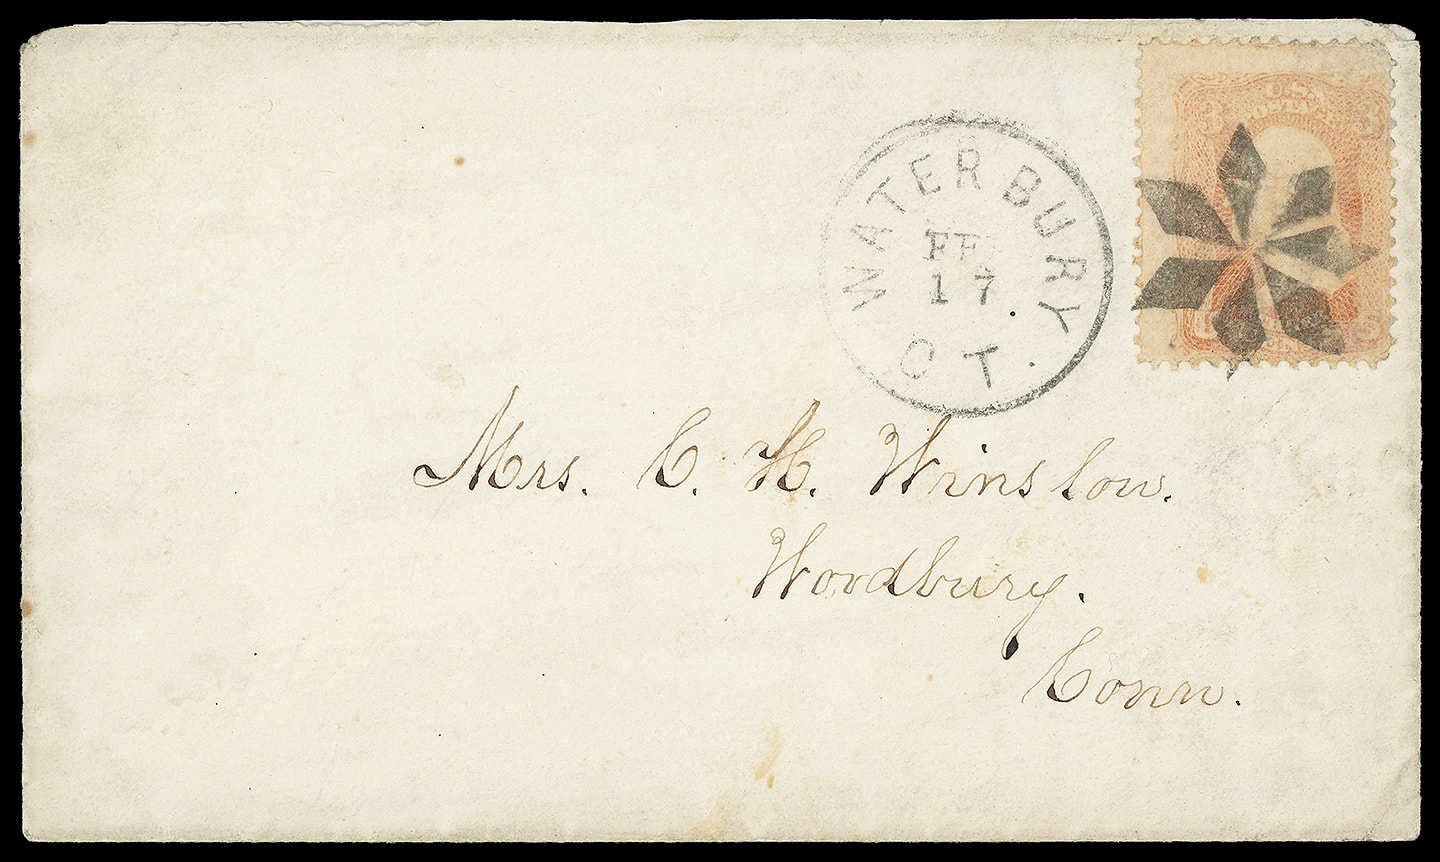 U.S.
POSTAGE
3 3
WATERBURY
FEB
17
CT.
Mrs. C. H. Winslow.
Woodbury.
Conn.